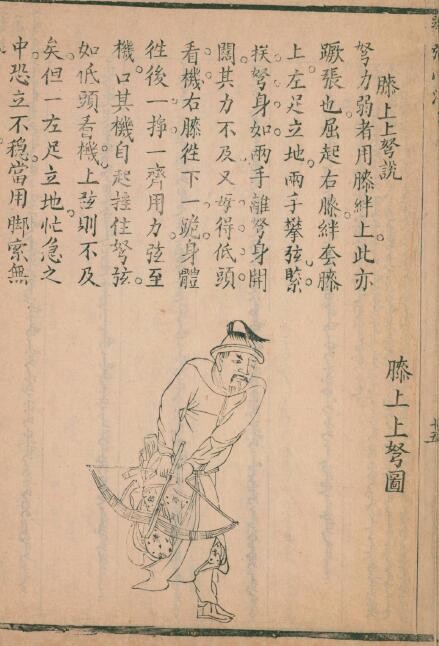 膝上上弩説
弩力弱者用膝絆上此亦
蹶張也屈起右膝絆套膝
上左足立地兩手攀弦緊
挨弩身如兩手離弩身開
闊其力不及又毋得低頭
看機右膝徃下一跪身體
徃後一掙一齊用力弦至
機口其機自起挂住弩弦
如低頭看機上弦則不及
矣但一左足立地忙急之
中恐立不穩當用脚索無
膝上上弩圖